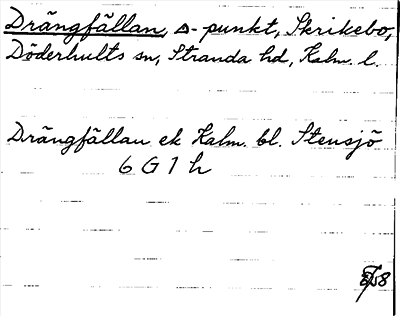 Drängfällan, △-punkt, Skrikebo,
Döderhults sn, Stranda hd, Kalm. l.
Drängfällan ek Kalm. bl. Stensjö
6 G 1 h